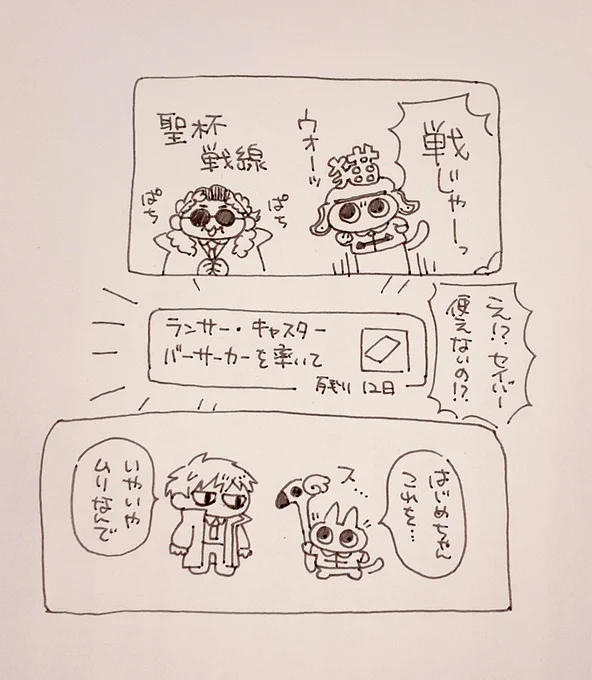 戦じゃーっ
ウオーッ
猫
聖杯
戦線
ぱち
ぱち
え!?セイバー
使えないの!?
ランサー・キャスター
バーサーカーを率いて
残り12日
はじめちゃん
これを…
ス…
いやいや
ムリなんで